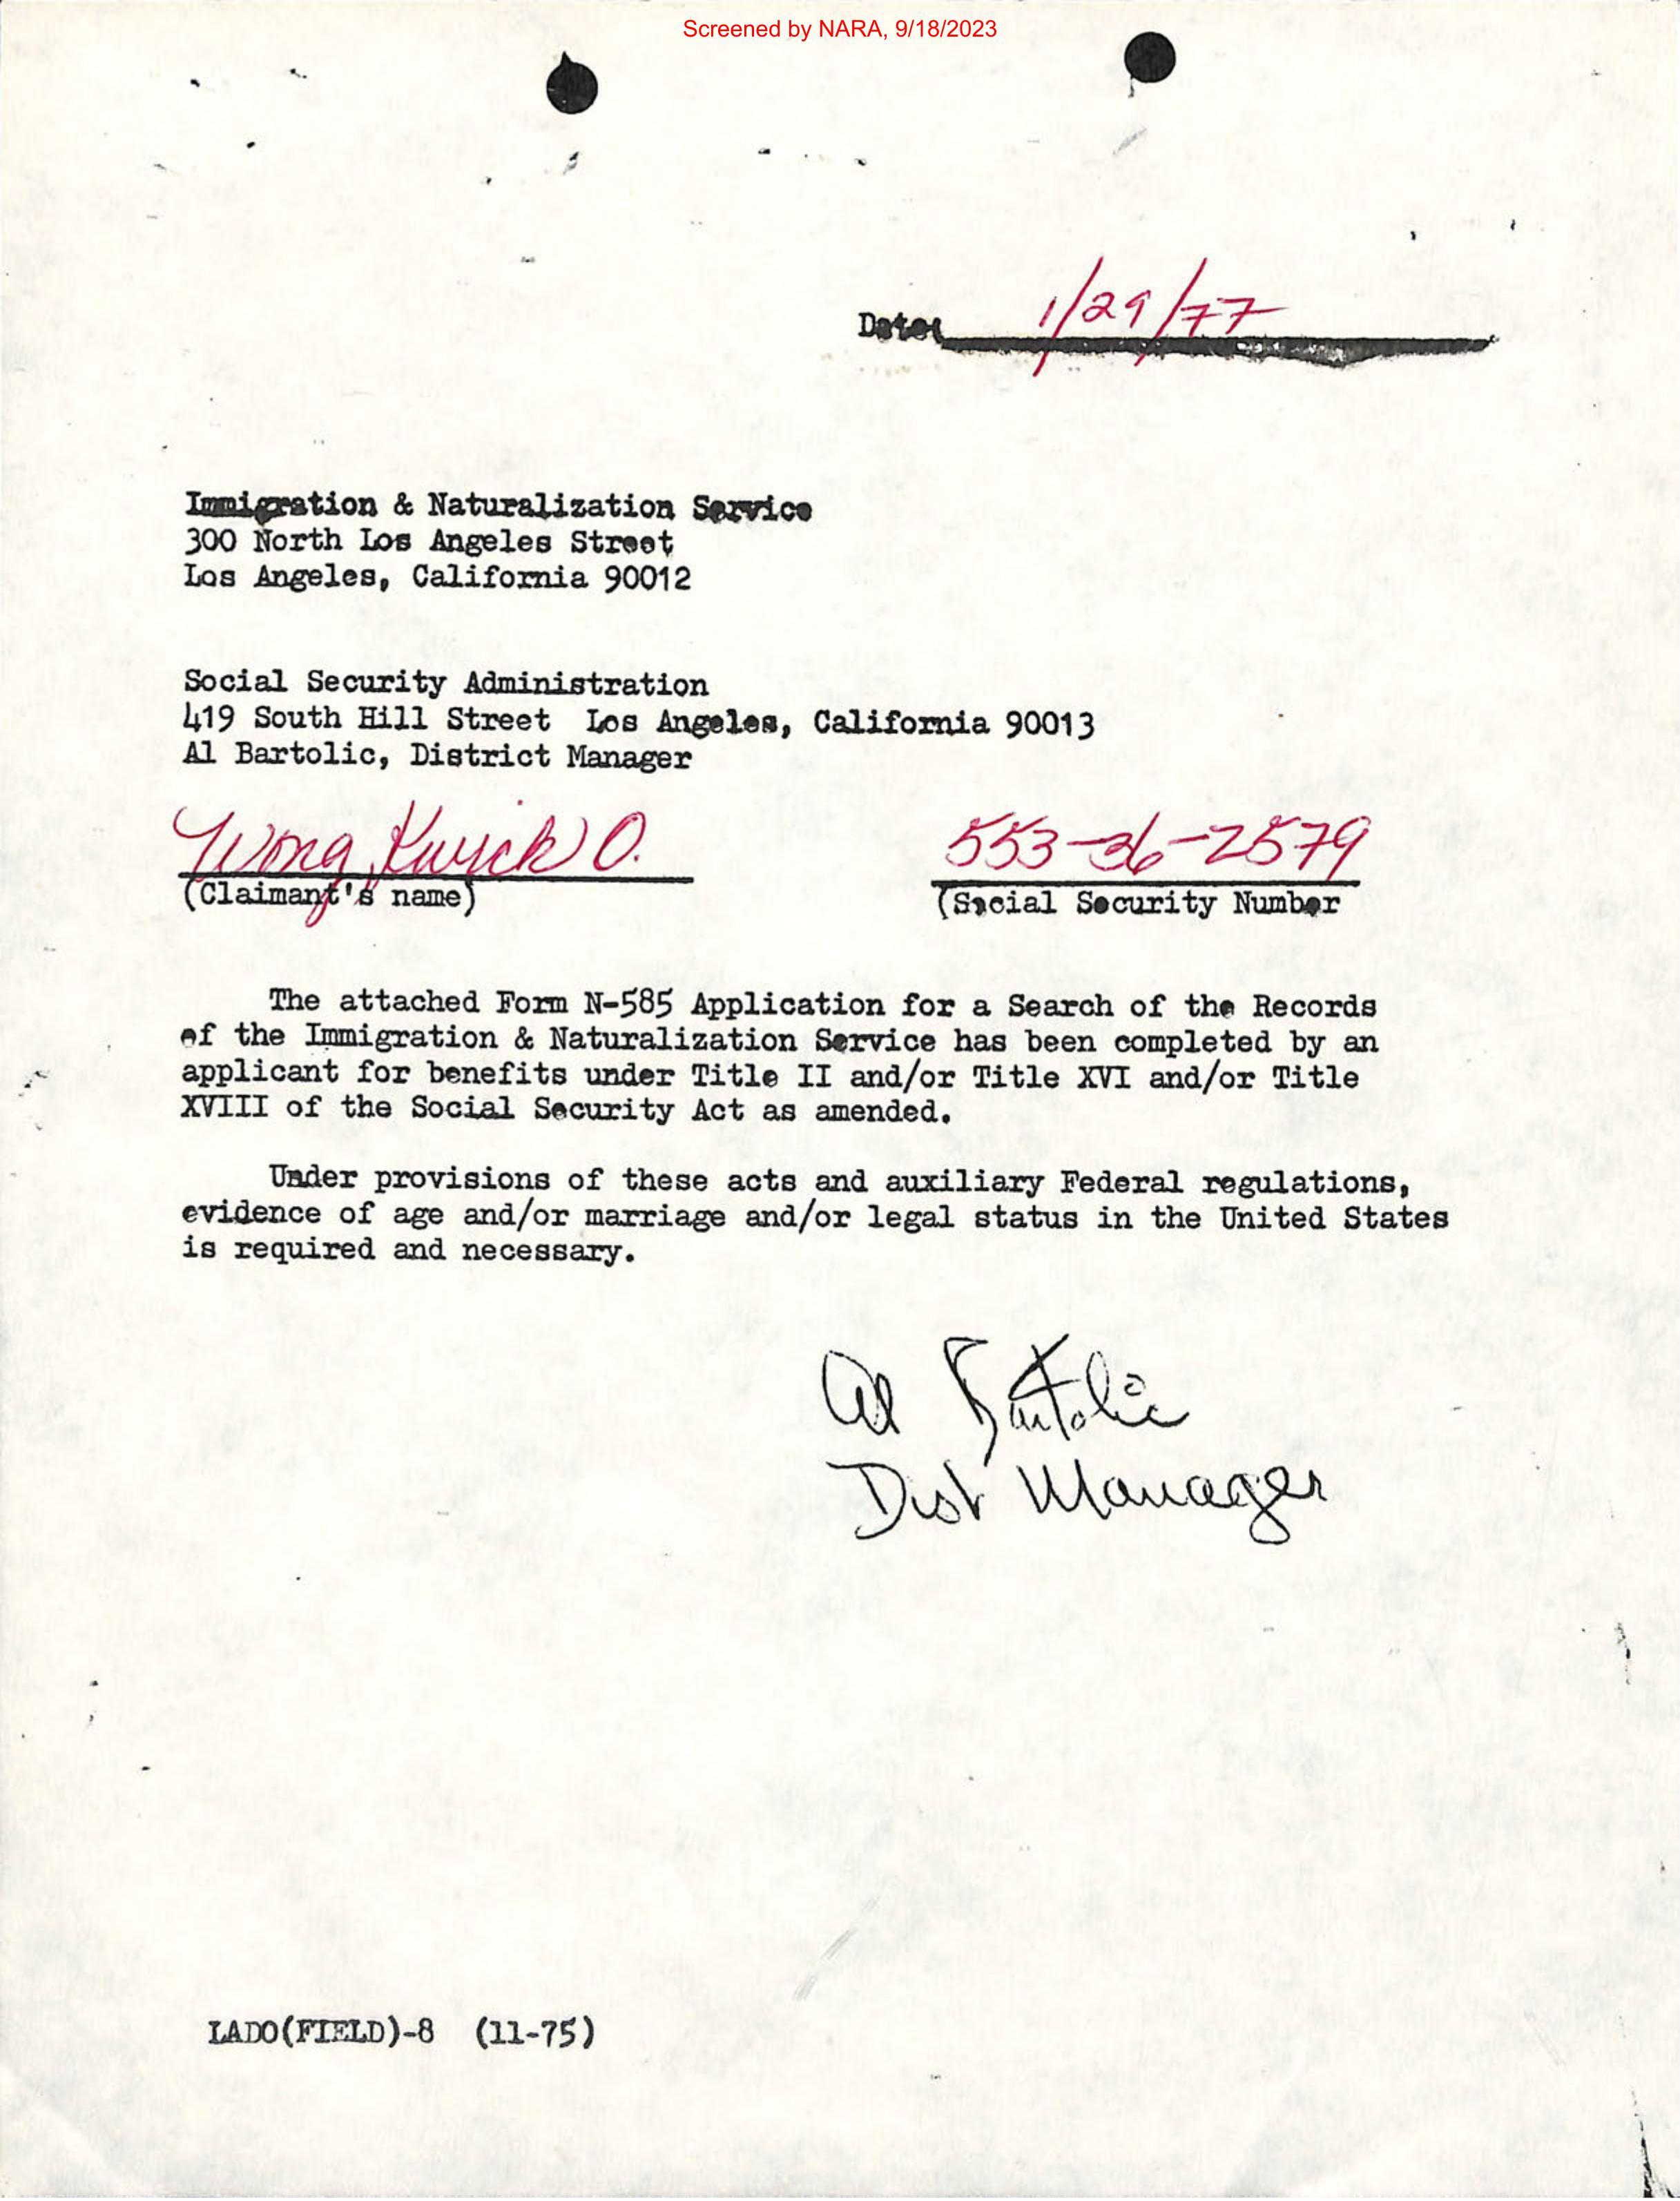 Screened by NARA, 9/18/2023
Date: 1/29/77
Immigration & Naturalization Service
300 North Los Angeles Street
Los Angeles, California 90012
Social Security Administration
419 South Hill Street Los Angeles, California 90013
Al Bartolic, District Manager
Wong, Kwick O. 553-36-2579
(Claimant's name) (Social Security Number
The attached Form N-585 Application for a Search of the Records
of the Immigration & Naturalization Service has been completed by an
applicant for benefits under Title II and/or Title XVI and/or Title
XVIII of the Social Security Act as amended.
Under provisions of these acts and auxiliary Federal regulations,
evidence of age and/or marriage and/or legal status in the United States
is required and necessary.
Al Bartolic
Dist Manager
LADO(FIELD)-8 (11-75)